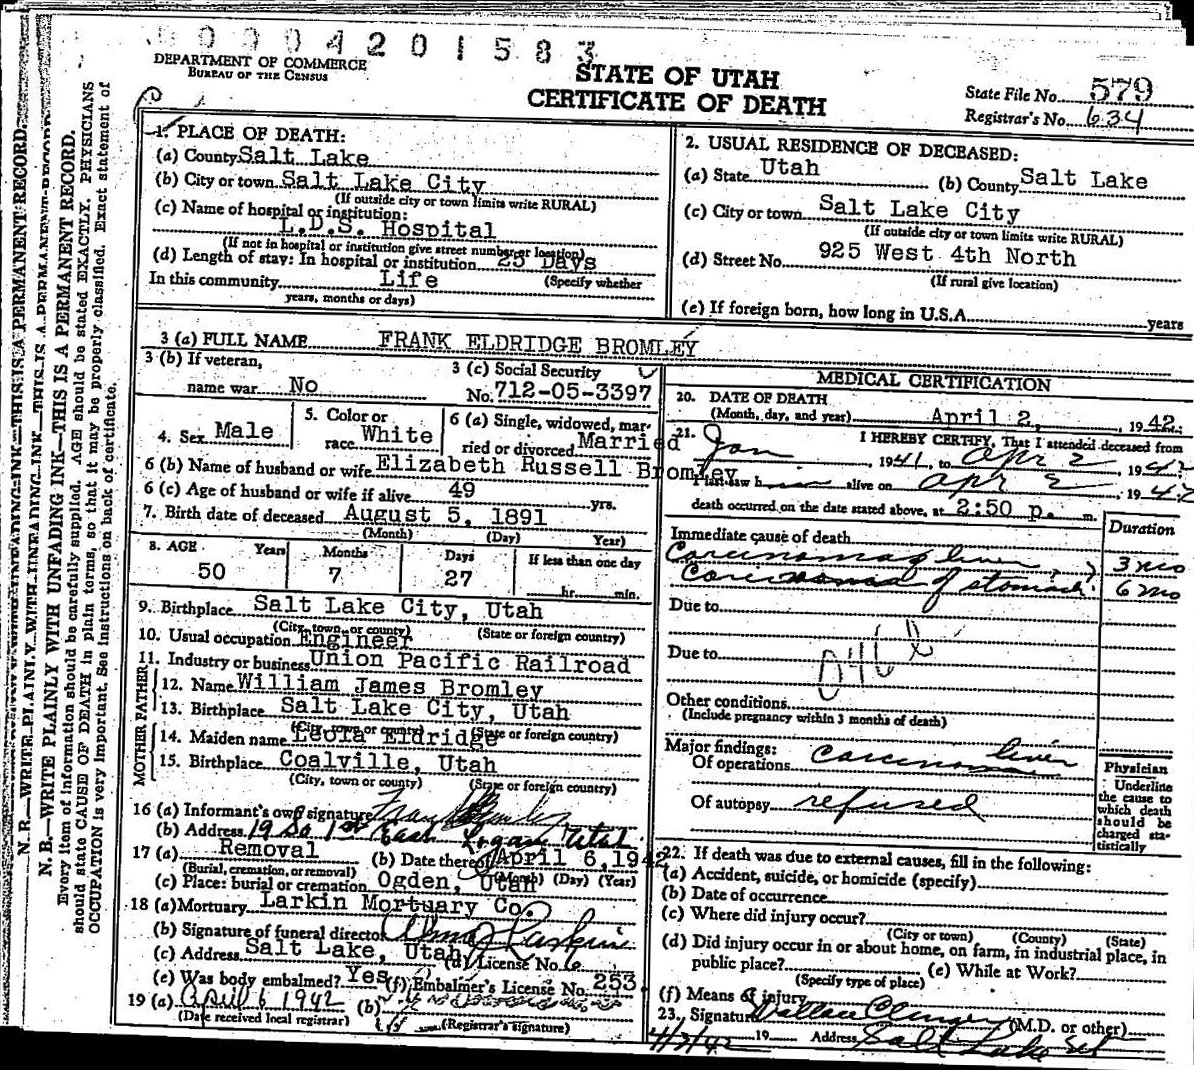 0 0 0 4 2 0 1 5 8 3
DEPARTMENT OF COMMERCE
BUREAU OF THE CENSUS
STATE OF UTAH
CERTIFICATE OF DEATH
State File No. 579
Registrar's No. 634
N. B.—WRITE PLAINLY WITH UNFADING INK—THIS IS A PERMANENT RECORD.
Every item of information should be carefully supplied. AGE should be stated EXACTLY. PHYSICIANS
should state CAUSE OF DEATH in plain terms, so that it may be properly classified. Exact statement of
OCCUPATION is very important. See instructions on back of certificate.
1. PLACE OF DEATH:
(a) County Salt Lake
(b) City or town Salt Lake City
(If outside city or town limits write RURAL)
(c) Name of hospital or institution:
L.D.S. Hospital
(If not in hospital or institution give street number or location)
(d) Length of stay: In hospital or institution 25 Days
In this community Life (Specify whether
years, months or days)
2. USUAL RESIDENCE OF DECEASED:
(a) State Utah (b) County Salt Lake
(c) City or town Salt Lake City
(If outside city or town limits write RURAL)
(d) Street No. 925 West 4th North
(If rural give location)
(e) If foreign born, how long in U.S.A. years
3 (a) FULL NAME FRANK ELDRIDGE BROMLEY
3 (b) If veteran,
name war No
3 (c) Social Security
No. 712-05-3397
4. Sex Male
5. Color or
race White
6 (a) Single, widowed, mar-
ried or divorced Married
6 (b) Name of husband or wife Elizabeth Russell Bromley
6 (c) Age of husband or wife if alive 49 yrs.
7. Birth date of deceased August 5, 1891
(Month) (Day) Year)
8. AGE Years Months Days If less than one day
50 7 27 hr. min.
9. Birthplace Salt Lake City, Utah
(City, town, or county) (State or foreign country)
10. Usual occupation Engineer
11. Industry or business Union Pacific Railroad
FATHER
12. Name William James Bromley
13. Birthplace Salt Lake City, Utah
(City, town or county) (State or foreign country)
MOTHER
14. Maiden name Leola Eldridge
15. Birthplace Coalville, Utah
(City, town or county) (State or foreign country)
16 (a) Informant's own signature
(b) Address 19 So 1st East Logan Utah
17 (a) Removal (b) Date thereof April 6, 1942
(Burial, cremation, or removal) (Month) (Day) (Year)
(c) Place: burial or cremation Ogden, Utah
18 (a) Mortuary Larkin Mortuary Co.
(b) Signature of funeral director
(c) Address Salt Lake, Utah (d) License No. 6
(e) Was body embalmed? Yes (f) Embalmer's License No. 253.
19 (a) April 6 1942 (b)
(Date received local registrar) (Registrar's signature)
MEDICAL CERTIFICATION
20. DATE OF DEATH
(Month, day, and year) April 2, 1942
21. I HEREBY CERTIFY, That I attended deceased from
Jan 1941, to Apr 2, 1942
I last saw h alive on Apr 2, 1942
death occurred on the date stated above, at 2:50 p. m.
Duration
Immediate cause of death
Carcinoma of liver 3 mo
Carcinoma of stomach 6 mo
Due to
Due to
046b
Other conditions
(Include pregnancy within 3 months of death)
Major findings:
Of operations carcinoma liver
Of autopsy refused
Physician
Underline
the cause to
which death
should be
charged sta-
tistically
22. If death was due to external causes, fill in the following:
(a) Accident, suicide, or homicide (specify)
(b) Date of occurrence
(c) Where did injury occur?
(City or town) (County) (State)
(d) Did injury occur in or about home, on farm, in industrial place, in
public place? (e) While at Work?
(Specify type of place)
(f) Means of injury
23. Signature Wallace Clinger (M.D. or other)
4/3/42 19 Address Salt Lake